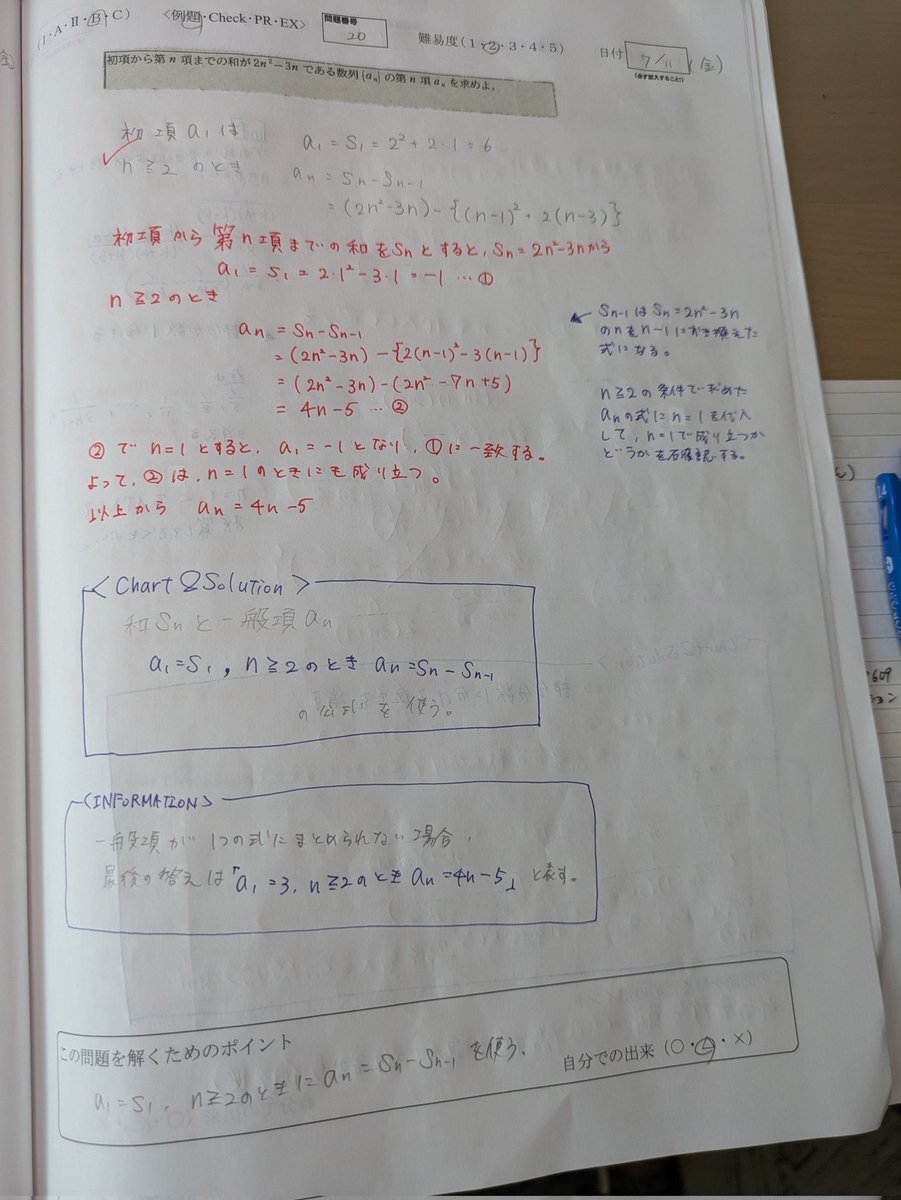 (I・A・II・B・C) <例題・Check・PR・EX> 問題番号 20 難易度(1・2・3・4・5) 日付 7/11 (金)
(必ず記入すること)
初項から第n項までの和が2n²−3nである数列{aₙ}の第n項aₙを求めよ。
初項a₁は a₁=S₁=2²+2・1=6
n≧2のとき aₙ=Sₙ−Sₙ₋₁
=(2n²−3n)−{(n−1)²+2(n−3)}
初項から第n項までの和をSₙとすると、Sₙ=2n²−3nから
a₁=S₁=2・1²−3・1=−1 …①
n≧2のとき
aₙ=Sₙ−Sₙ₋₁
=(2n²−3n)−{2(n−1)²−3(n−1)}
=(2n²−3n)−(2n²−7n+5)
=4n−5 …②
Sₙ₋₁はSₙ=2n²−3n
のnをn−1におき換えた
式になる。
n≧2の条件で求めた
aₙの式にn=1を代入
して、n=1で成り立つか
どうかを確認する。
②でn=1とすると、a₁=−1となり、①に一致する。
よって、②は、n=1のときにも成り立つ。
以上から aₙ=4n−5
<Chart&Solution>
和Sₙと一般項aₙ
a₁=S₁, n≧2のとき aₙ=Sₙ−Sₙ₋₁
の公式を使う。
<INFORMATION>
一般項が1つの式にまとめられない場合、
最後の答えは「a₁=3, n≧2のときaₙ=4n−5」と表す。
この問題を解くためのポイント
a₁=S₁, n≧2のときにaₙ=Sₙ−Sₙ₋₁を使う.
自分での出来(○・△・×)